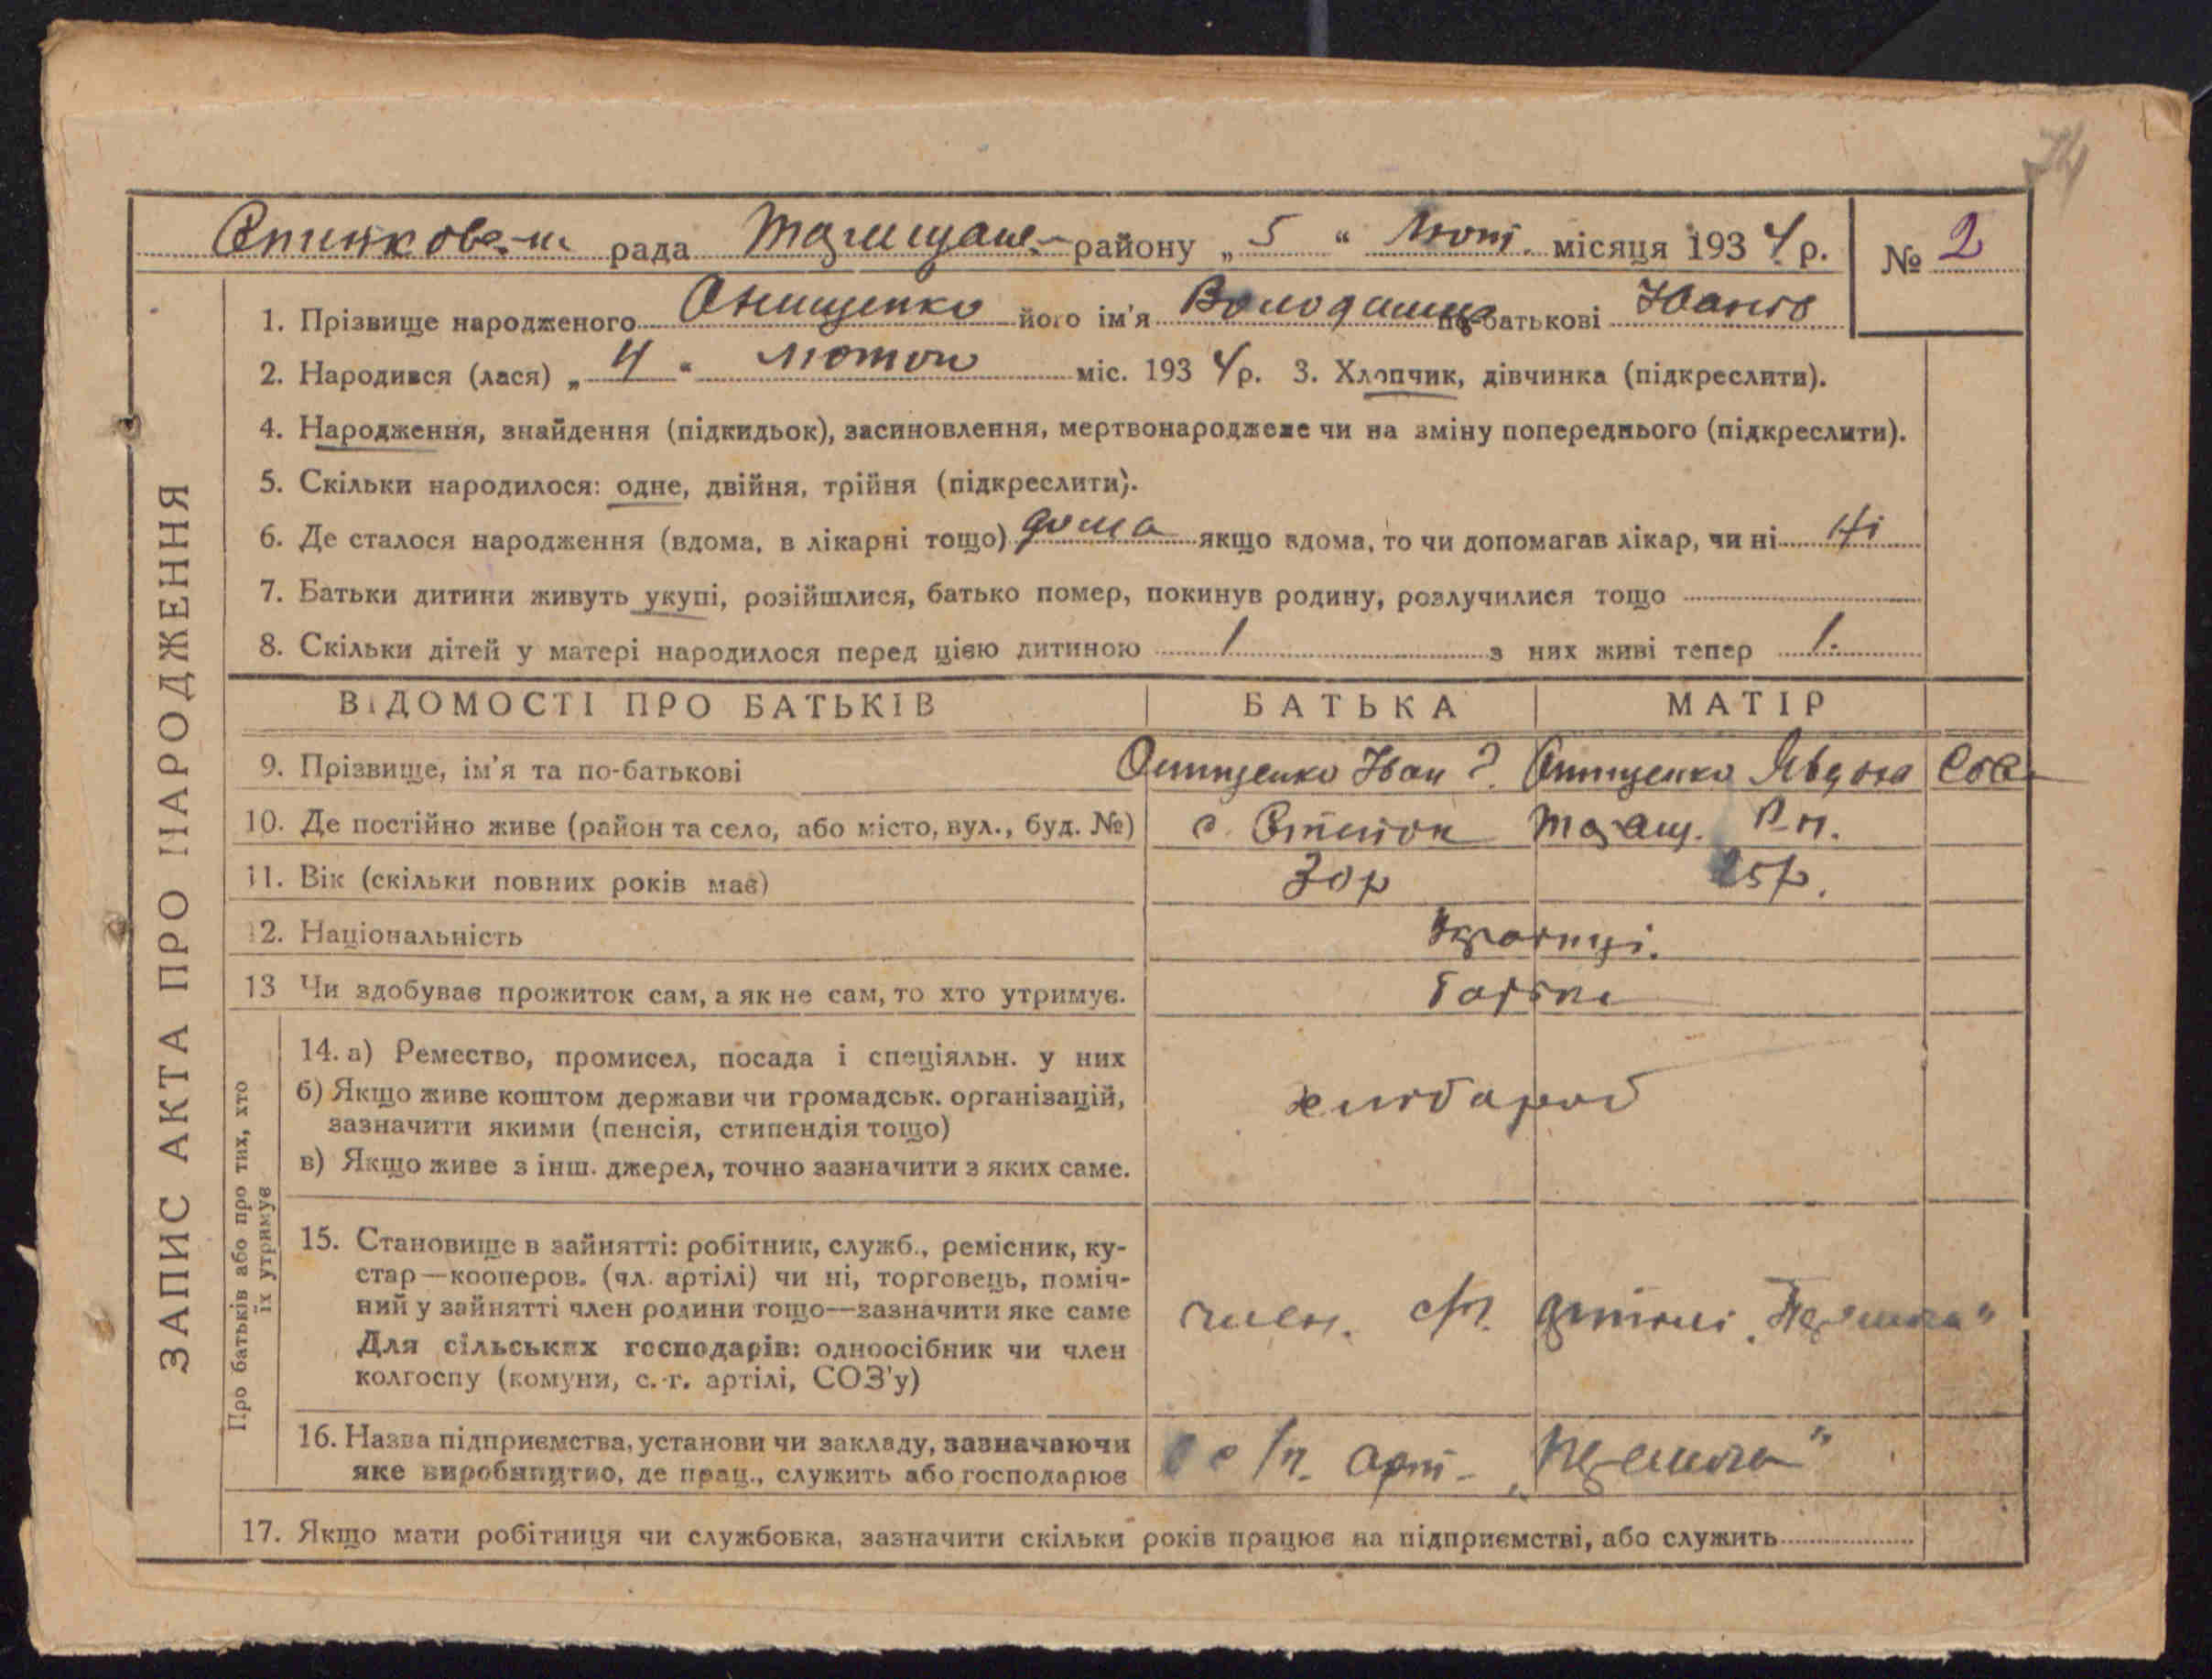 рада района „ 5 “ Лют. місяця 1934 р. № 2
1. Прізвище народженого Онищенко його ім'я Володимир по-батькові Іванів
2. Народився (лася) „ 4 “ лютого міс. 1934 р. 3. Хлопчик, дівчинка (підкреслити).
4. Народження, знайдення (підкидьок), засиновлення, мертвонароджене чи на зміну попереднього (підкреслити).
5. Скільки народилося: одне, двійня, трійня (підкреслити).
6. Де сталося народження (вдома, в лікарні тощо) дома якщо вдома, то чи допомагав лікар, чи ні Ні
7. Батьки дитини живуть укупі, розійшлися, батько помер, покинув родину, розлучилися тощо
8. Скільки дітей у матері народилося перед цією дитиною 1 з них живі тепер 1.
ВІДОМОСТІ ПРО БАТЬКІВ БАТЬКА МАТІР
9. Прізвище, ім'я та по-батькові Онищенко Іван Онищенко Явдоха
10. Де постійно живе (район та село, або місто, вул., буд. №) с.
11. Вік (скільки повних років має) 30 р 25 р.
12. Національність Українці.
13 Чи здобуває прожиток сам, а як не сам, то хто утримує.
14. а) Ремество, промисел, посада і спеціяльн. у них
б) Якщо живе коштом держави чи громадськ. організацій,
зазначити якими (пенсія, стипендія тощо)
в) Якщо живе з інш. джерел, точно зазначити з яких саме.
хлібороб
15. Становище в зайнятті: робітник, служб., ремісник, ку-
стар—кооперов. (чл. артілі) чи ні, торговець, поміч-
ний у зайнятті член родини тощо—зазначити яке саме
Для сільських господарів: одноосібник чи член
колгоспу (комуни, с.-г. артілі, СОЗ'у)
член. с/г. артілі
16. Назва підприємства, установи чи закладу, зазначаючи
яке виробництво, де прац., служить або господарює
с/г. арт.
17. Якщо мати робітниця чи службовка, зазначити скільки років працює на підприємстві, або служить
ЗАПИС АКТА ПРО НАРОДЖЕННЯ
Про батьків або про тих, хто
їх утримує